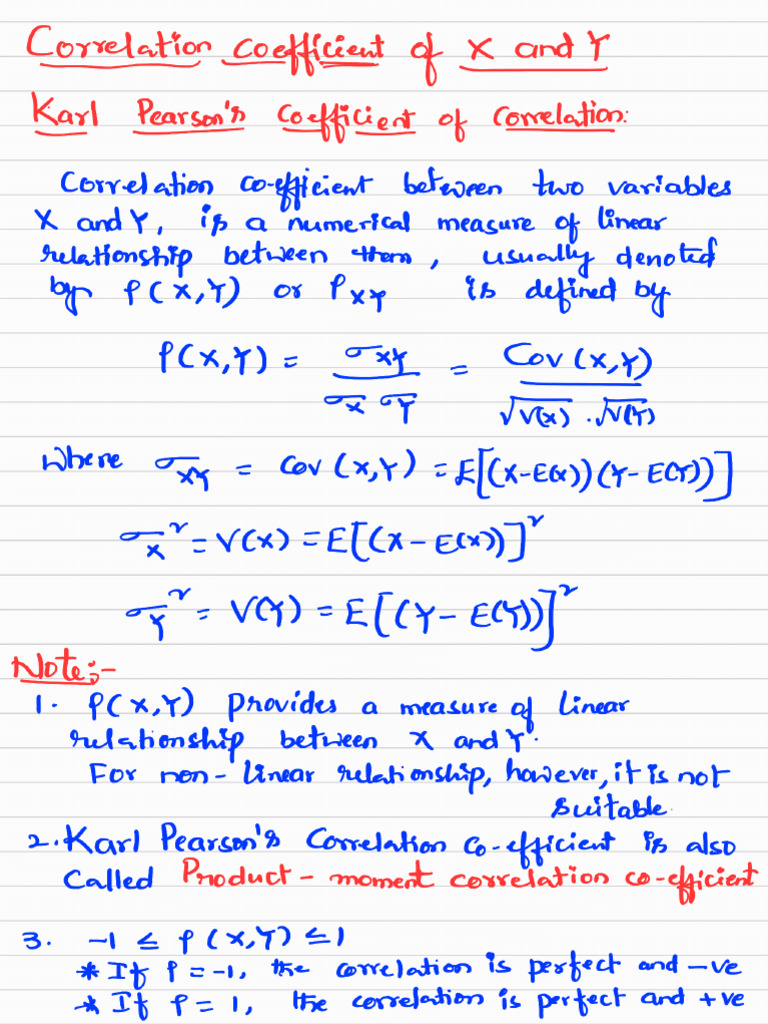 Correlation coefficient of X and Y
Karl Pearson's Coefficient of Correlation:
Correlation co-efficient between two variables
X and Y, is a numerical measure of linear
relationship between them, usually denoted
by ρ(X,Y) or ρ_XY is defined by
ρ(X,Y) = σ_XY / (σ_X σ_Y) = Cov(X,Y) / (√V(X) . √V(Y))
where σ_XY = Cov(X,Y) = E[(X-E(X))(Y-E(Y))]
σ_X² = V(X) = E[(X-E(X))]²
σ_Y² = V(Y) = E[(Y-E(Y))]²
Note:-
1. ρ(X,Y) Provides a measure of linear
relationship between X and Y.
For non-linear relationship, however, it is not
suitable.
2. Karl Pearson's Correlation co-efficient is also
called Product-moment correlation co-efficient
3. -1 ≤ ρ(X,Y) ≤ 1
* If ρ = -1, the correlation is perfect and -ve
* If ρ = 1, the correlation is perfect and +ve